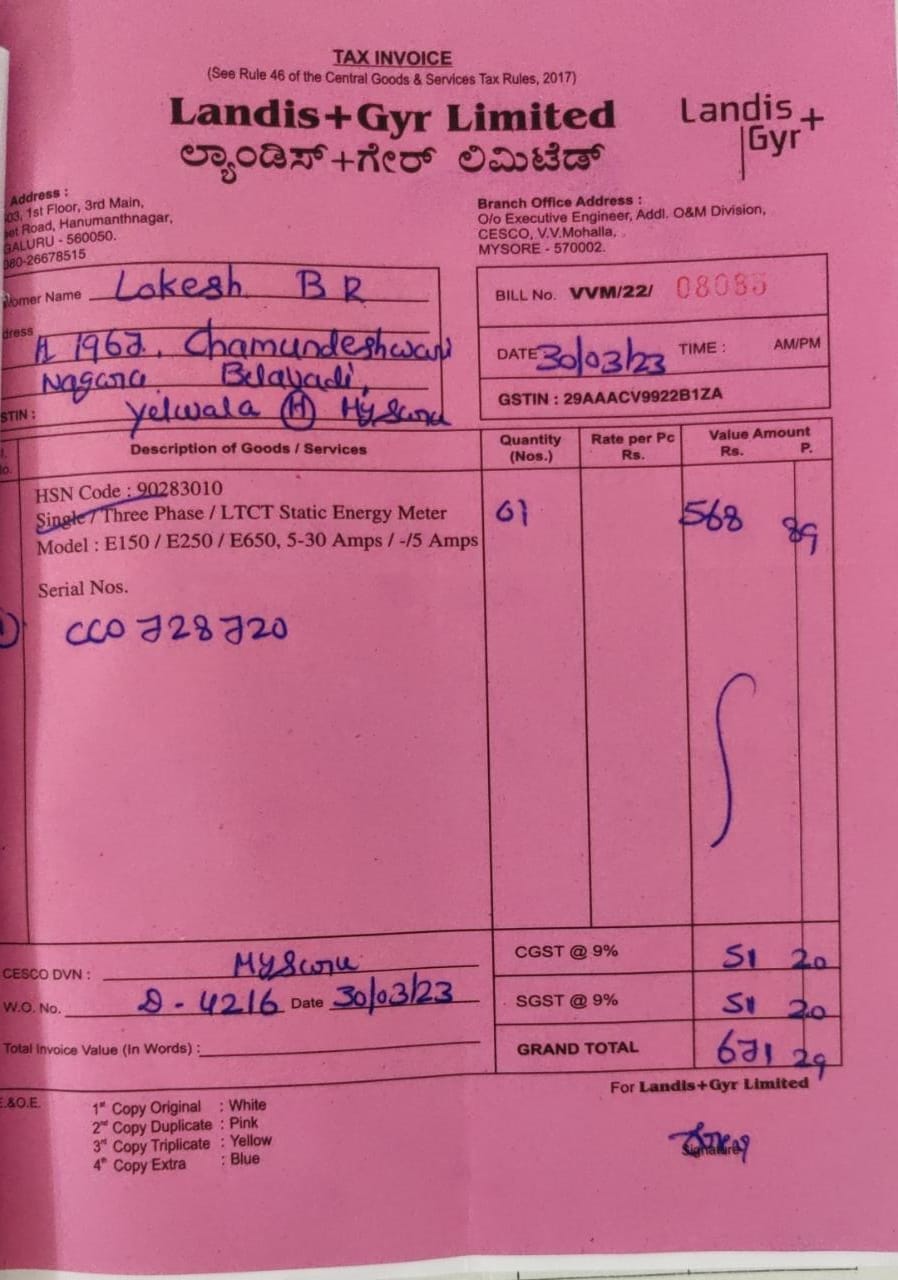 TAX INVOICE
(See Rule 46 of the Central Goods & Services Tax Rules, 2017)
Landis+Gyr Limited
ಲ್ಯಾಂಡಿಸ್+ಗೇರ್ ಲಿಮಿಟೆಡ್
Landis
Gyr+
Address :
03, 1st Floor, 3rd Main,
et Road, Hanumanthnagar,
GALURU - 560050.
080-26678515
Branch Office Address :
O/o Executive Engineer, Addl. O&M Division,
CESCO, V.V.Mohalla,
MYSORE - 570002.
omer Name Lokesh B R
dress # 1967, Chamundeshwari
Nagara Belavadi,
Yelwala (H) Mysuru
STIN :
BILL No. VVM/22/ 08085
DATE 30/03/23 TIME : AM/PM
GSTIN : 29AAACV9922B1ZA
Description of Goods / Services
Quantity (Nos.)
Rate per Pc Rs.
Value Amount
Rs. P.
HSN Code : 90283010
Single / Three Phase / LTCT Static Energy Meter 01 568 89
Model : E150 / E250 / E650, 5-30 Amps / -/5 Amps
Serial Nos.
1) CC0728720
CESCO DVN : Mysuru
W.O. No. D - 4216 Date 30/03/23
Total Invoice Value (In Words) :
CGST @ 9% 51 20
SGST @ 9% 51 20
GRAND TOTAL 671 29
For Landis+Gyr Limited
E.&O.E.
1st Copy Original : White
2nd Copy Duplicate : Pink
3rd Copy Triplicate : Yellow
4th Copy Extra : Blue
Signature